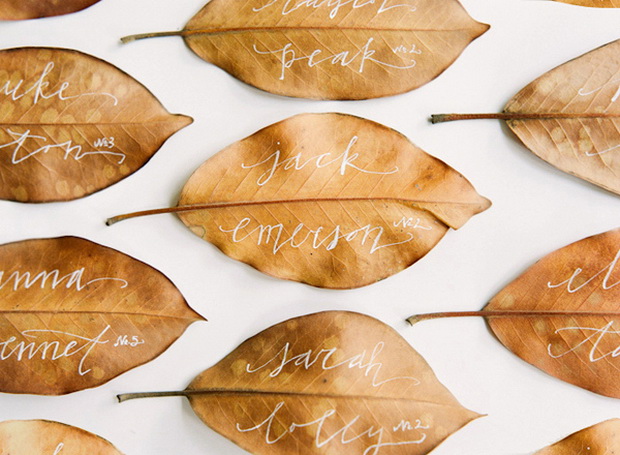 taylor
peak No.2.
uke
ton No.3
jack
emerson No.2.
anna
ennet No.5.
sarah
lolly No.2
el
ta